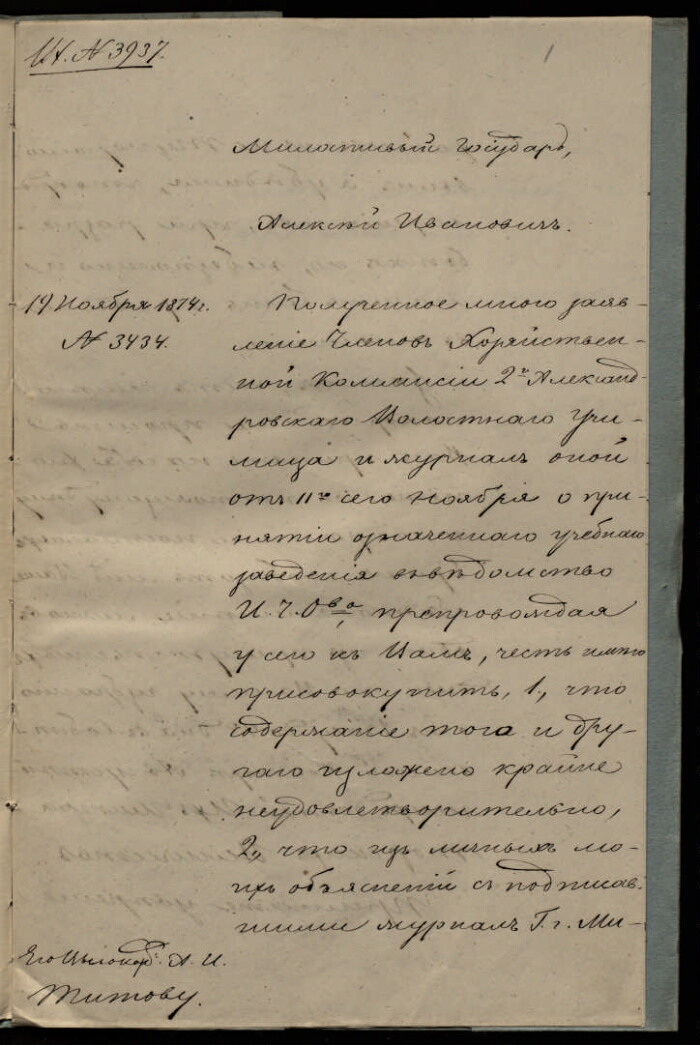 Ч. N 3937.
1
Милостивый Государь,
Алексѣй Ивановичъ.
19 Ноября 1874 г.
N 3434.
Полученное мною заяв-
леніе Членовъ Хозяйствен-
ной Коммисіи 2го Александ-
ровскаго Волостнаго Учи-
лища и журналъ оной
отъ 11го сего Ноября о при-
нятіи означеннаго учебнаго
заведенія въ вѣдомство
И. Ч. О-ва, препровождая
у сего къ Вамъ, честь имѣю
присовокупить, 1., что
содержаніе того и дру-
гаго изложено крайне
неудовлетворительно,
2., что изъ личныхъ мо-
ихъ объясненій съ подписав-
шими журналъ Г. г. Ми-
Его Высокор. А. И.
Титову.